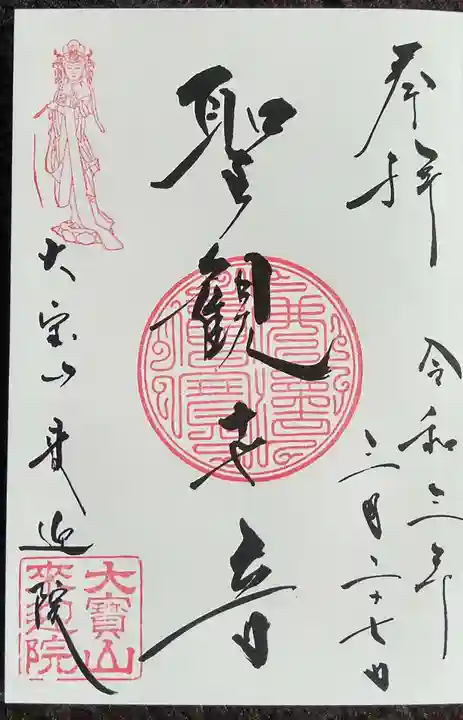 奉拝
令和三年
三月二十七日
聖観世音
大宝山来迎院
大寶山
来迎院